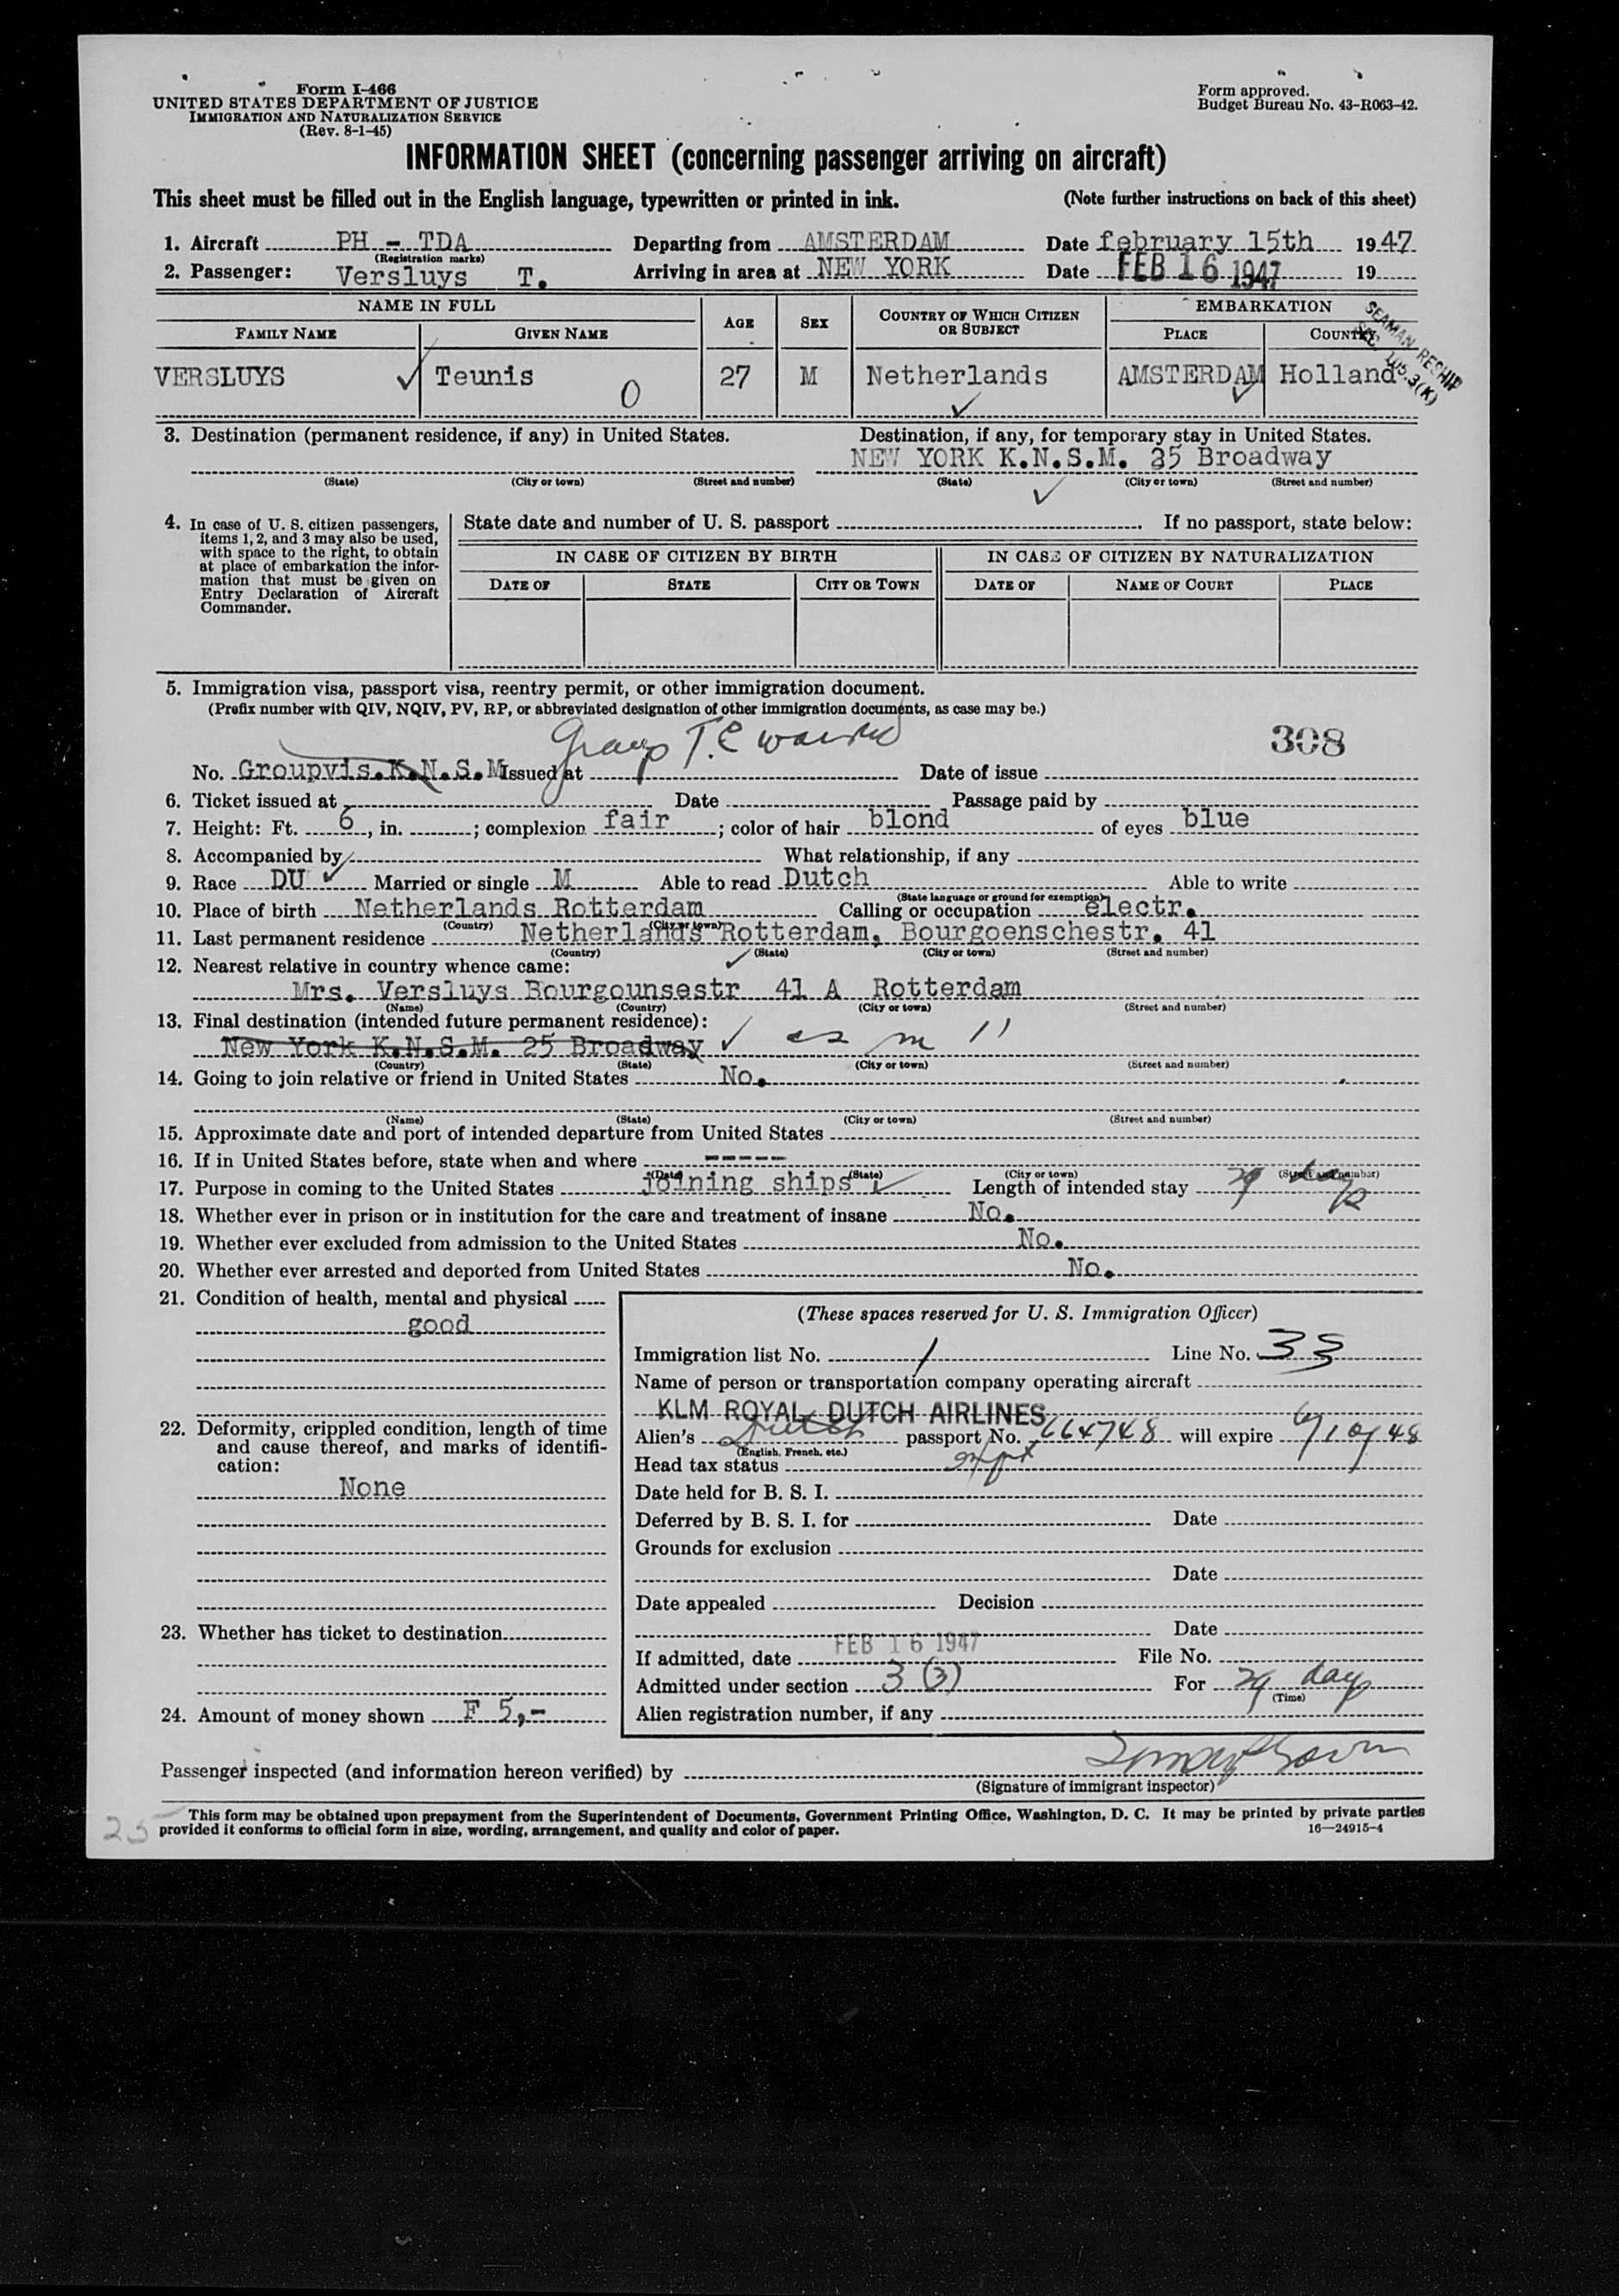 Form I-466
UNITED STATES DEPARTMENT OF JUSTICE
IMMIGRATION AND NATURALIZATION SERVICE
(Rev. 8-1-45)
Form approved.
Budget Bureau No. 43-R063-42.
INFORMATION SHEET (concerning passenger arriving on aircraft)
This sheet must be filled out in the English language, typewritten or printed in ink. (Note further instructions on back of this sheet)
1. Aircraft PH - TDA Departing from AMSTERDAM Date february 15th 1947
(Registration marks)
2. Passenger: Versluys T. Arriving in area at NEW YORK Date FEB 16 1947 19
NAME IN FULL AGE SEX COUNTRY OF WHICH CITIZEN OR SUBJECT EMBARKATION
FAMILY NAME GIVEN NAME PLACE COUNTRY
SEAMAN RESHIP
SEC. 105.3(K)
VERSLUYS Teunis 0 27 M Netherlands AMSTERDAM Holland
3. Destination (permanent residence, if any) in United States. Destination, if any, for temporary stay in United States.
NEW YORK K.N.S.M. 25 Broadway
(State) (City or town) (Street and number) (State) (City or town) (Street and number)
4. In case of U. S. citizen passengers, items 1, 2, and 3 may also be used, with space to the right, to obtain at place of embarkation the information that must be given on Entry Declaration of Aircraft Commander.
State date and number of U. S. passport . If no passport, state below:
IN CASE OF CITIZEN BY BIRTH IN CASE OF CITIZEN BY NATURALIZATION
DATE OF STATE CITY OR TOWN DATE OF NAME OF COURT PLACE
5. Immigration visa, passport visa, reentry permit, or other immigration document.
(Prefix number with QIV, NQIV, PV, RP, or abbreviated designation of other immigration documents, as case may be.)
Group T.C 308
No. Groupvis.K.N.S.M Issued at Date of issue
6. Ticket issued at Date Passage paid by
7. Height: Ft. 6, in. ; complexion fair ; color of hair blond of eyes blue
8. Accompanied by What relationship, if any
9. Race DU Married or single M Able to read Dutch Able to write
(State language or ground for exemption)
10. Place of birth Netherlands Rotterdam Calling or occupation electr.
(Country) (City or town)
11. Last permanent residence Netherlands Rotterdam, Bourgoenschestr. 41
(Country) (State) (City or town) (Street and number)
12. Nearest relative in country whence came:
Mrs. Versluys Bourgounsestr 41 A Rotterdam
(Name) (Country) (City or town) (Street and number)
13. Final destination (intended future permanent residence):
New York K.N.S.M. 25 Broadway as in 11
(Country) (State) (City or town) (Street and number)
14. Going to join relative or friend in United States No.
(Name) (State) (City or town) (Street and number)
15. Approximate date and port of intended departure from United States
16. If in United States before, state when and where -----
(Date) (State) (City or town) (Street and number)
17. Purpose in coming to the United States joining ships Length of intended stay 29 days
18. Whether ever in prison or in institution for the care and treatment of insane No.
19. Whether ever excluded from admission to the United States No.
20. Whether ever arrested and deported from United States No.
21. Condition of health, mental and physical
good
22. Deformity, crippled condition, length of time and cause thereof, and marks of identification:
None
23. Whether has ticket to destination
24. Amount of money shown F 5,-
(These spaces reserved for U. S. Immigration Officer)
Immigration list No. 1 Line No. 33
Name of person or transportation company operating aircraft
KLM ROYAL DUTCH AIRLINES
Alien's Dutch passport No. 664748 will expire
(English, French, etc.)
Head tax status
Date held for B. S. I.
Deferred by B. S. I. for Date
Grounds for exclusion
Date
Date appealed Decision
Date
If admitted, date FEB 16 1947 File No.
Admitted under section 3 (3) For 29 days
(Time)
Alien registration number, if any
Passenger inspected (and information hereon verified) by
(Signature of immigrant inspector)
This form may be obtained upon prepayment from the Superintendent of Documents, Government Printing Office, Washington, D. C. It may be printed by private parties
provided it conforms to official form in size, wording, arrangement, and quality and color of paper. 16—24915-4
25